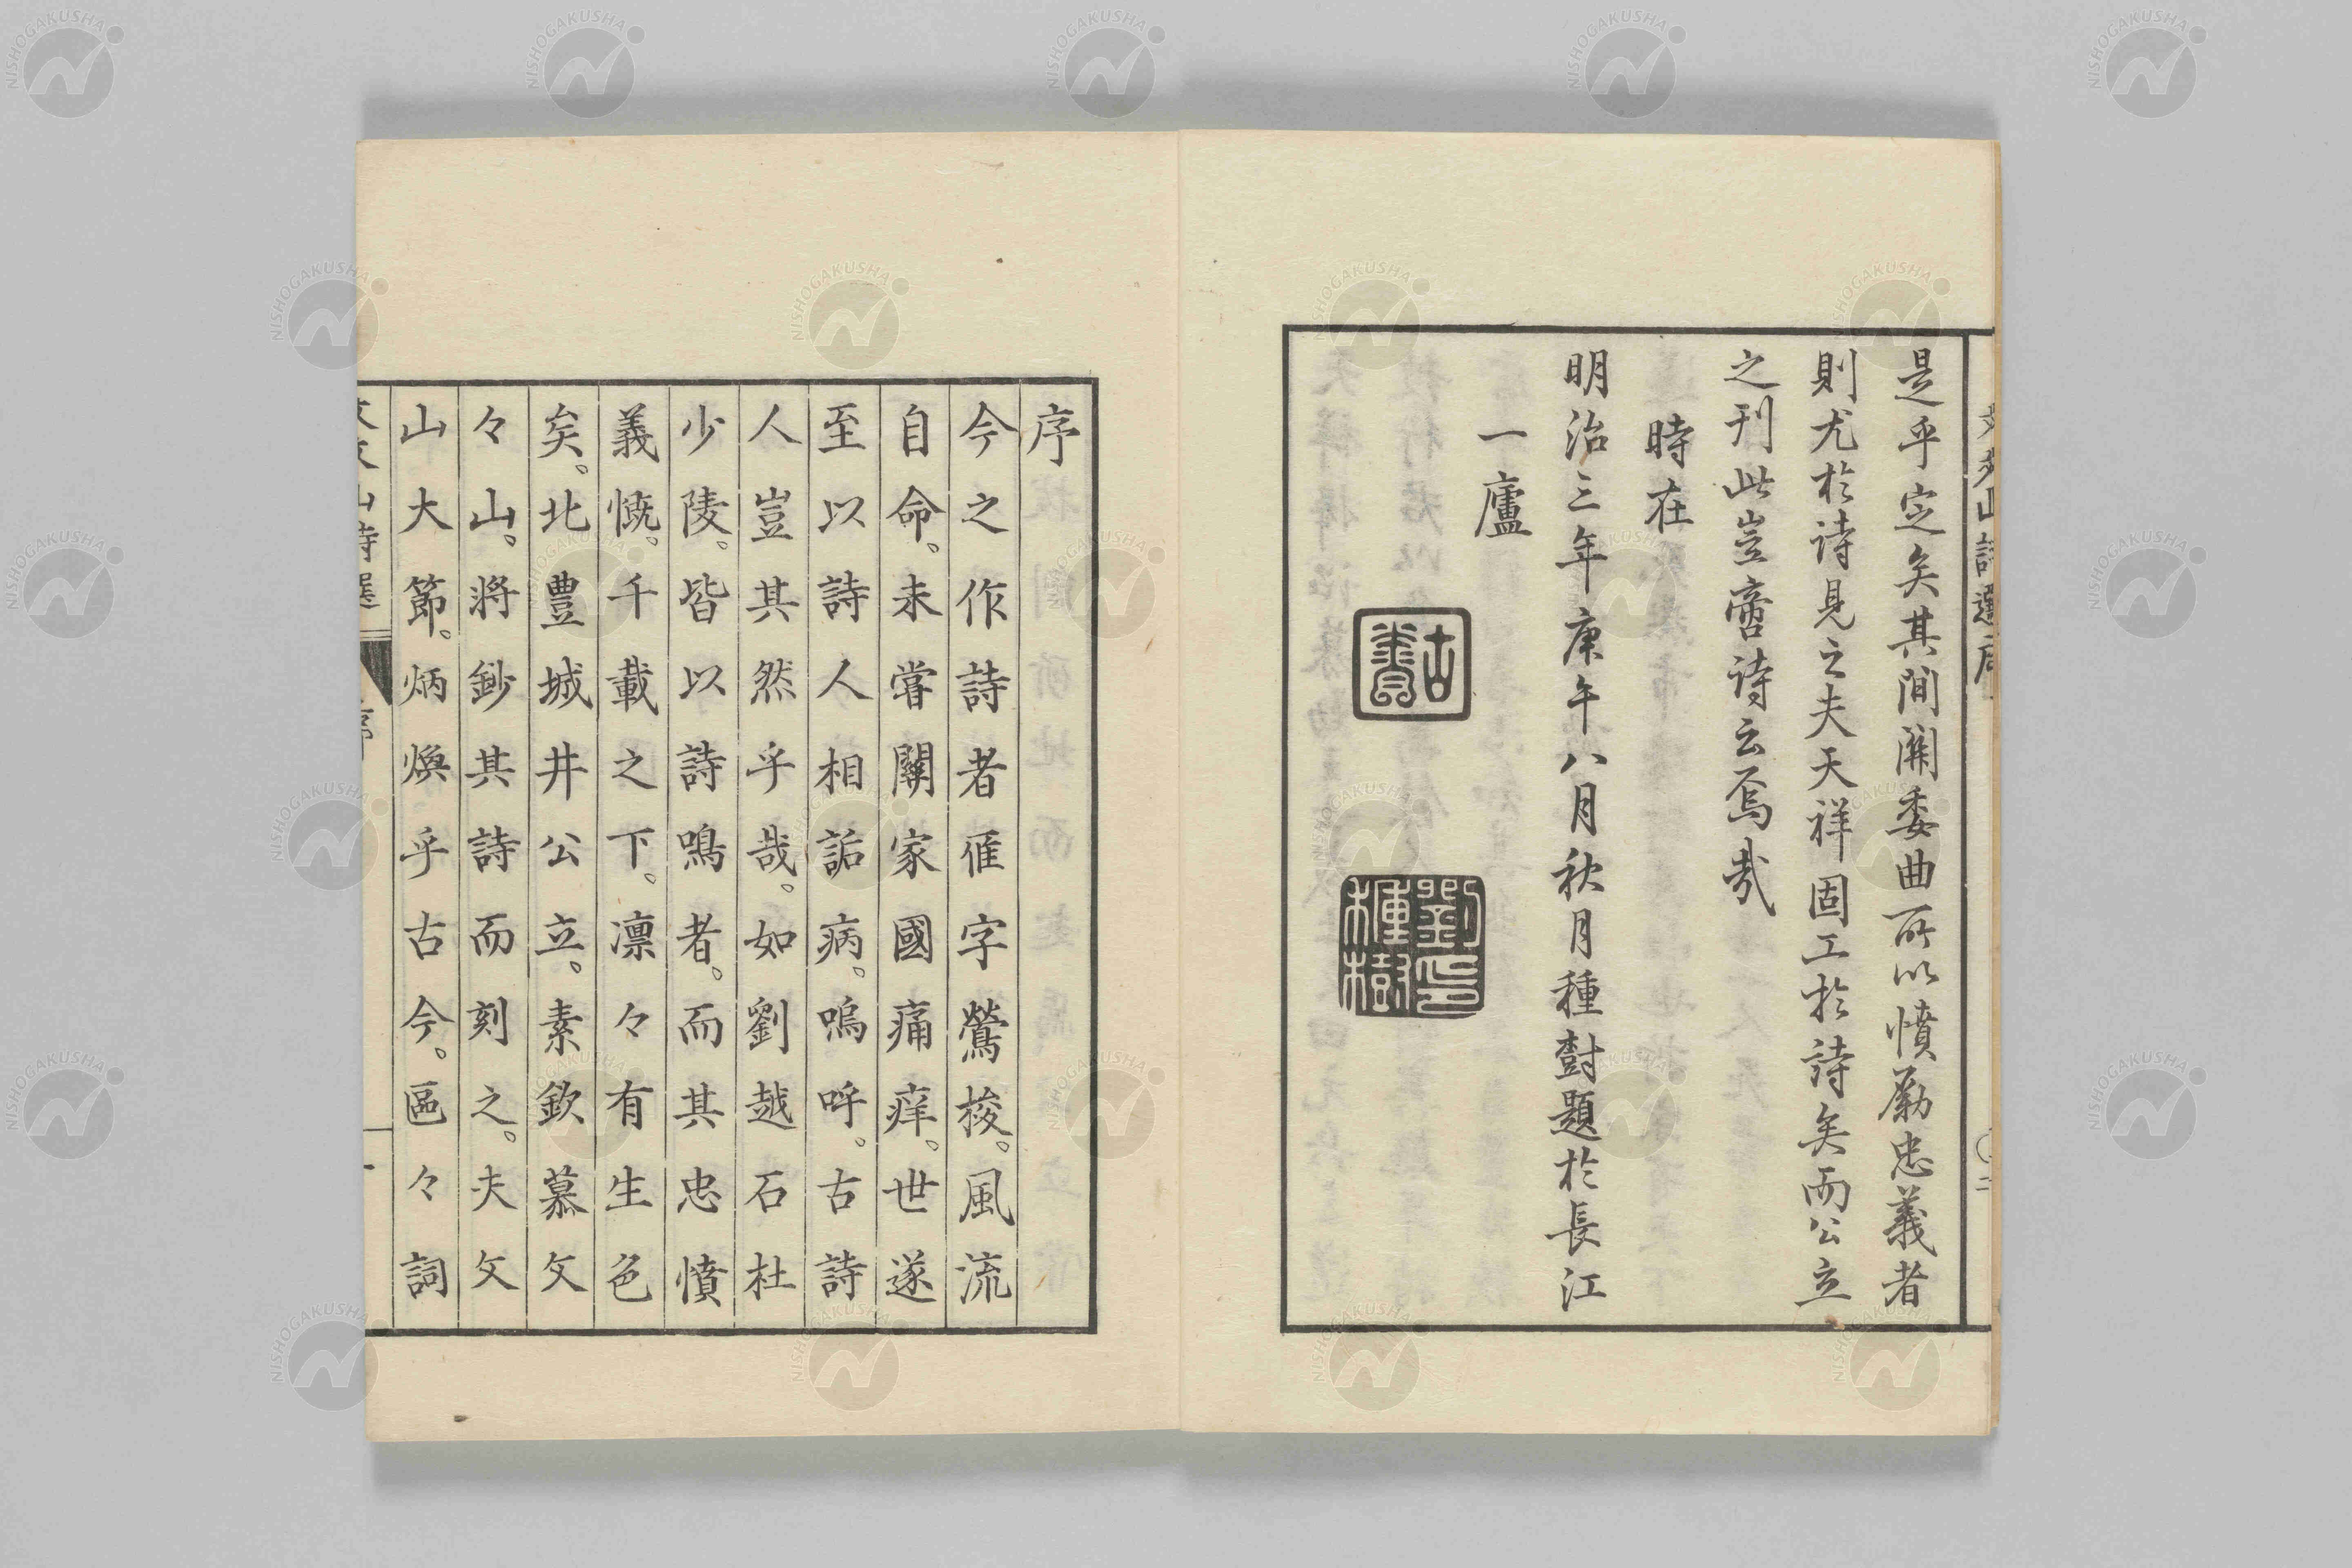 是乎定矣其間關委曲所以憤勵忠義者
則尤於詩見之夫天祥固工於詩矣而公立
之刊此豈啻詩云焉哉
時在
明治三年庚午八月秋月種樹題於長江
一廬
古香
劉印種樹
序
今之作詩者。雁字鶯梭。風流
自命。未嘗關家國痛痒。世遂
至以詩人相詬病。嗚呼。古詩
人豈其然乎哉。如劉越石杜
少陵。皆以詩鳴者。而其忠憤
義慨。千載之下。凛々有生色
矣。北豊城井公立。素欽慕文
々山。將鈔其詩而刻之。夫文
山大節。炳煥乎古今。區々詞
文文山詩選 序 一
NISHOGAKUSHA